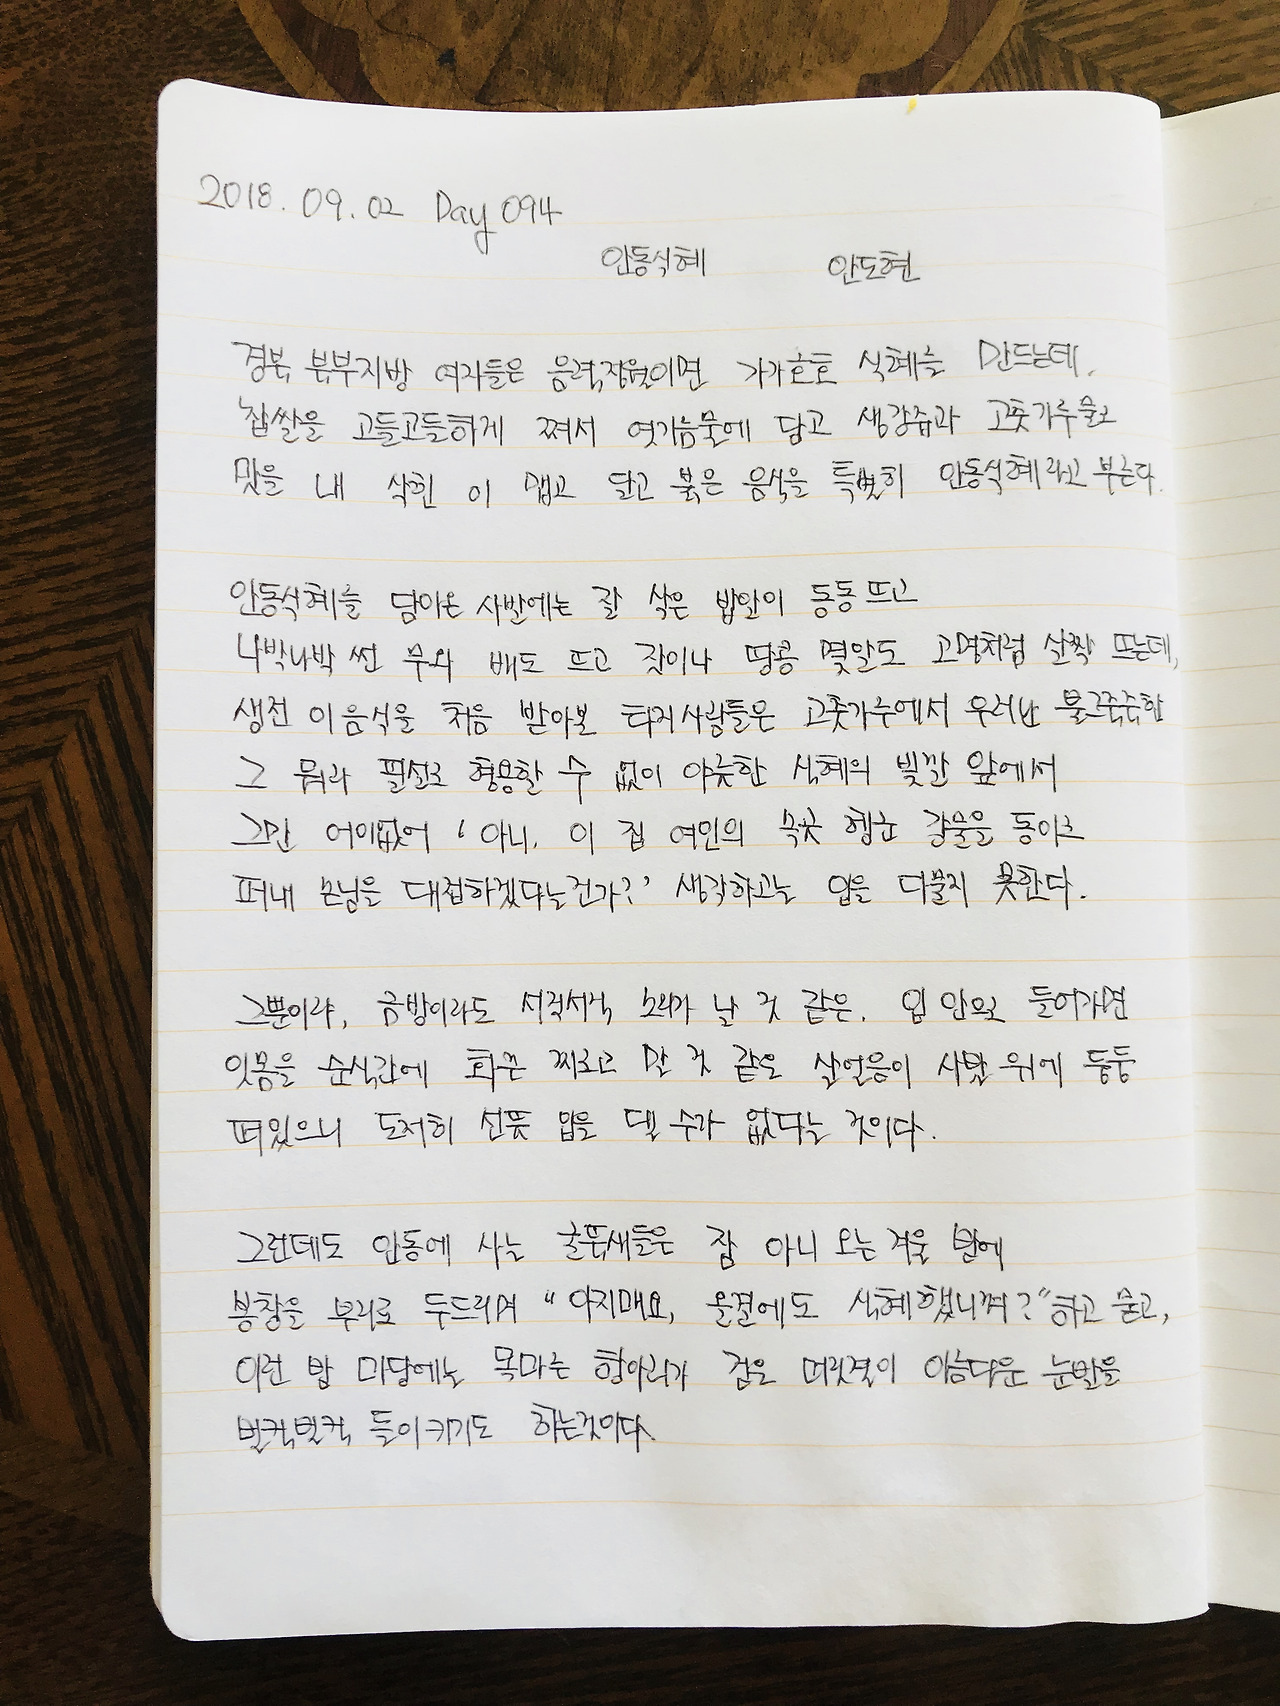 2018. 09. 02 Day 094
안동식혜 안도현
경북 북부지방 여자들은 음력정월이면 가가호호 식혜를 만드는데,
찹쌀을 고들고들하게 쪄서 엿기름물에 담고 생강즙과 고춧가루물로
맛을 내 삭힌 이 맵고 달고 붉은 음식을 특별히 안동식혜라고 부른다.
안동식혜를 담아온 사발에는 잘 삭은 밥알이 동동 뜨고
나박나박 썬 무와 배도 뜨고 잣이나 땅콩 몇알도 고명처럼 살짝 뜨는데,
생전 이 음식을 처음 받아본 타지사람들은 고춧가루에서 우러난 불그죽죽한
그 뭐라 필설로 형용할 수 없이 야릇한 식혜의 빛깔 앞에서
그만 어이없어 '아니, 이 집 여인의 속곳 헹군 강물을 동이로
퍼내 손님을 대접하겠다는건가?' 생각하고는 입을 다물지 못한다.
그뿐이랴, 금방이라도 서걱서걱 소리가 날 것 같은, 입 안으로 들어가면
잇몸을 순식간에 화끈 찌르고 말 것 같은 살얼음이 사발 위에 둥둥
떠있으니 도저히 선뜻 입을 댈 수가 없다는 것이다.
그런데도 안동에 사는 굴뚝새들은 잠 아니 오는 겨울 밤에
봉창을 부리로 두드리며 "아지매요, 올결에도 식혜했니껴?" 하고 묻고,
이런 밤 마당에는 목마른 항아리가 검은 머릿결이 아름다운 눈발을
벌컥벌컥 들이키기도 하는것이다.